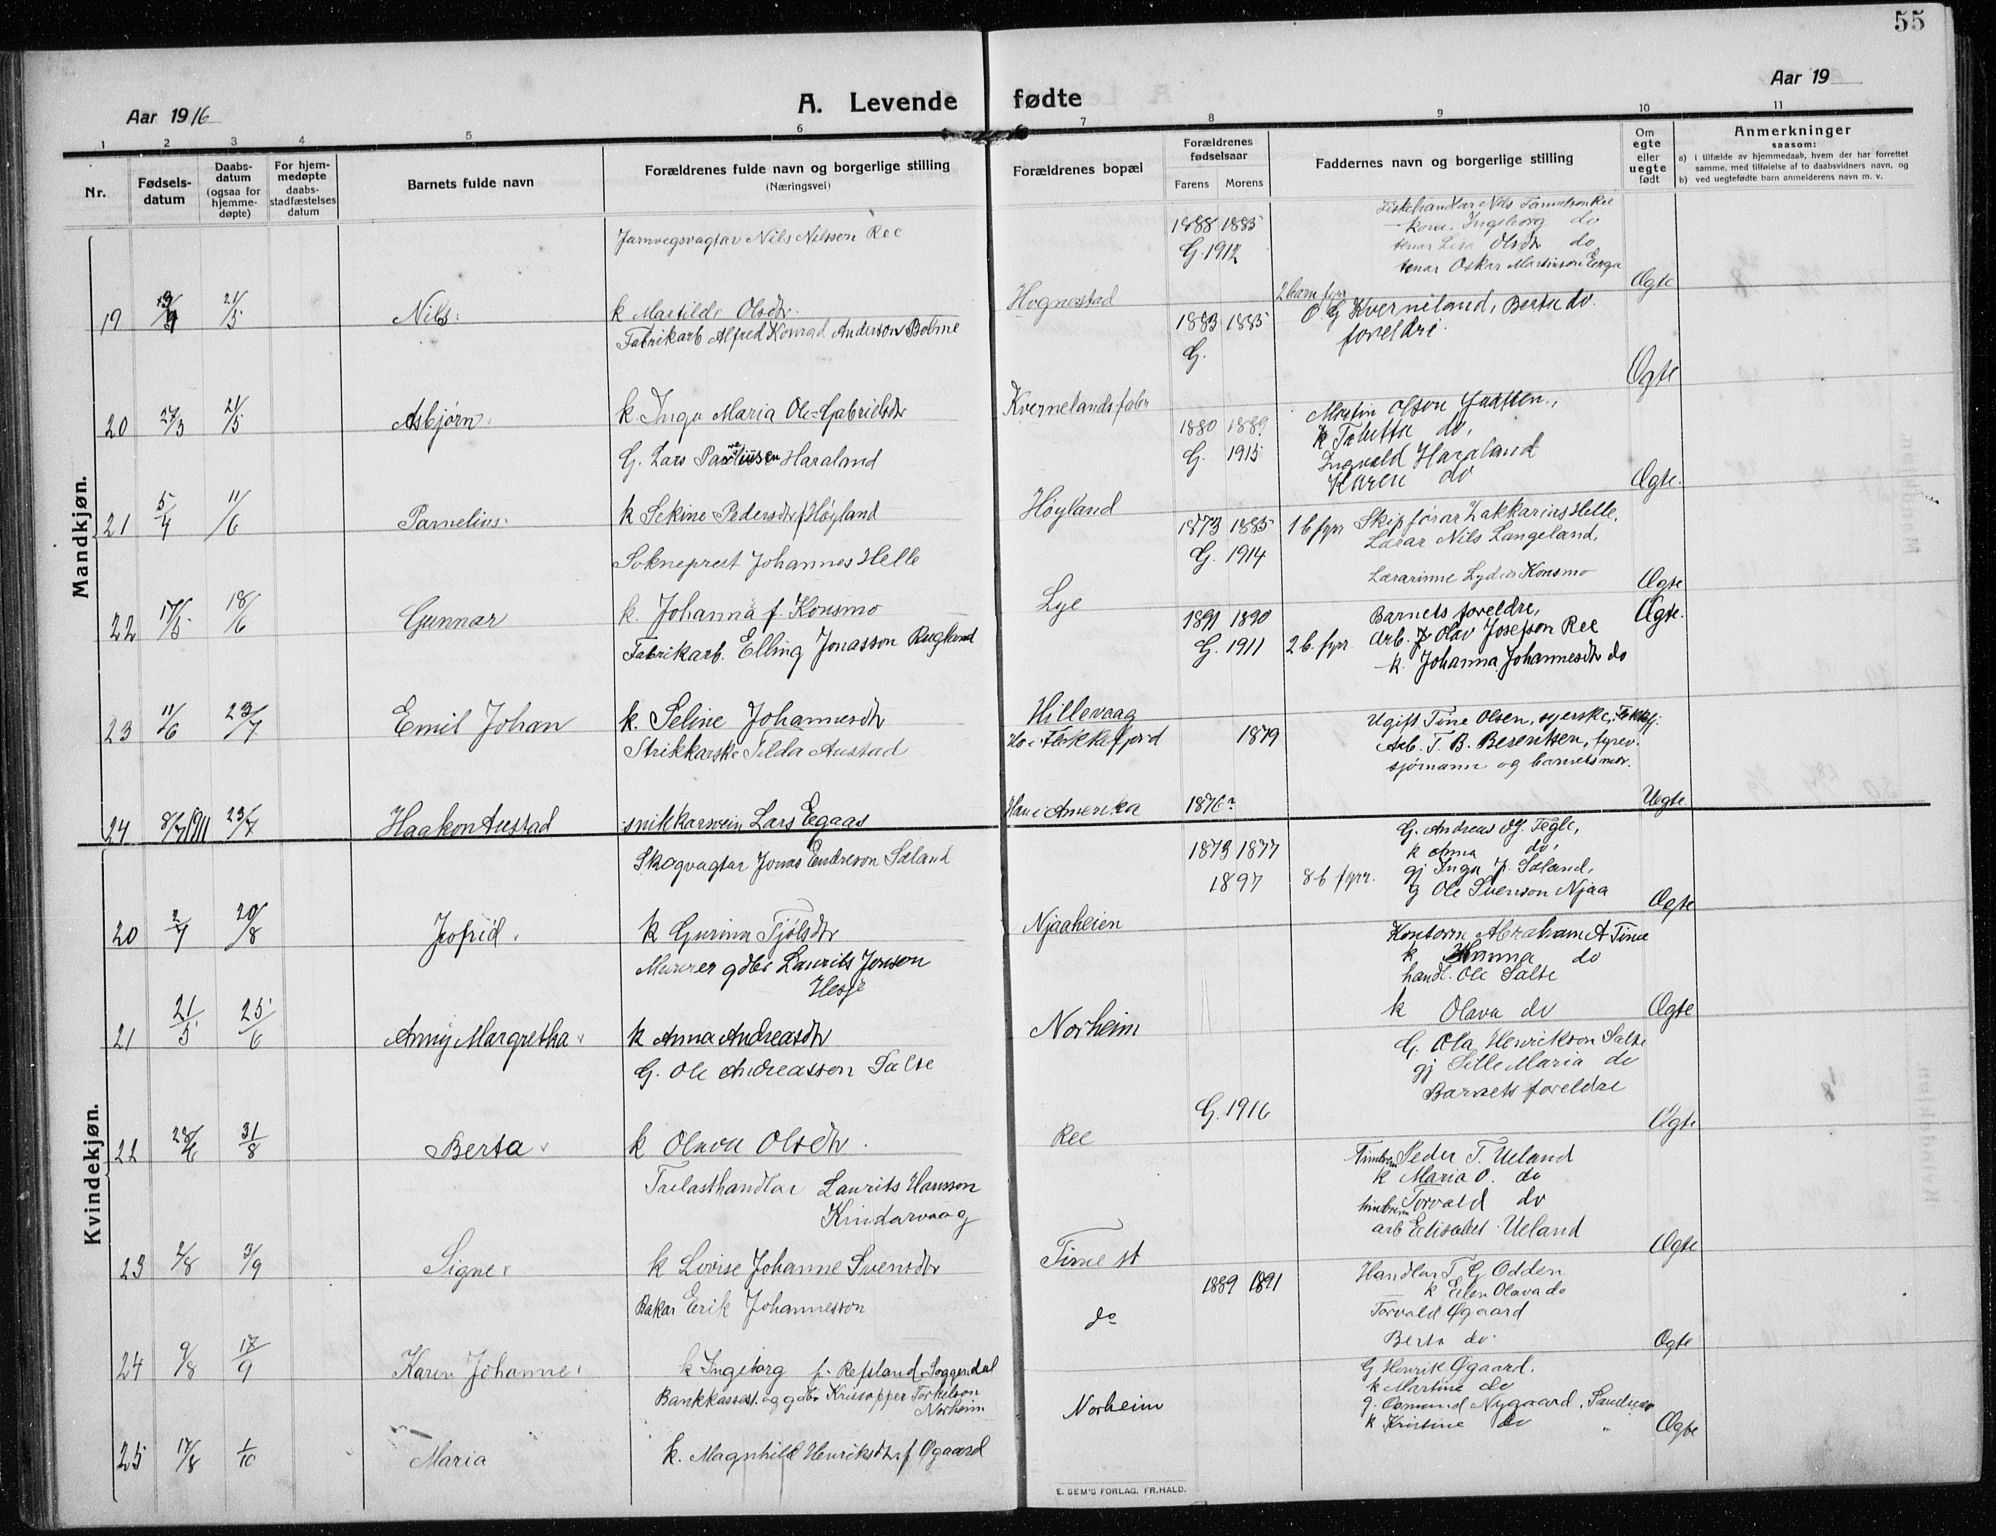 55
Aar 1916
A. Levende fødte
Aar 19
1 2 3 4 5 6 7 8 9 10 11
Nr.
Fødsels-
datum
Daabs-
datum
(ogsaa for
hjemme-
døpte)
For hjem-
medøpte
daabs-
stadfæstelses
datum
Barnets fulde navn
Forældrenes fulde navn og borgerlige stilling
(Næringsvei)
Forældrenes bopæl
Forældrenes
fødselsaar
Farens Morens
Faddernes navn og borgerlige stilling
Om
egte
eller
uegte
født
Anmerkninger
saasom:
a) i tilfælde av hjemmedaab, hvem der har forrettet
samme, med tilføielse af to daabsvidners navn, og
b) ved uegtefødte barn anmelderens navn m. v.
Mandkjøn.
Jarnvegsvagtar Nils Nilssen Ree
1888 1885
G. 1912
Fiskehandlar Nils
kone Ingeborg do
Olsdtr do
tenar Oskar Martinson
19 21/5 Nils
k Martilde Olsdtr
Hognestad
2 barn fyrr
Ægte
Fabrikarb Alfred Konrad Anderson Bolme
1883 1885
G.
O G Kverneland, Berta do.
foreldri
20 27/3 21/5 Asbjørn
k Inga Maria Ole-Gabrielsdtr
Kvernelands fabr
Ægte
G. Lars Haraland
1880 1889
G. 1915
Martin Olson
k Tabitta do,
Ingvald Haraland
Karen do
21 5/4 11/6 Parnelius
k Sekine Pedersdtr f Høyland
Høyland
Ægte.
Sokneprest Johannes Helle
1873 1885
G. 1914
1 b fyrr
Skipførar Zakkarias Helle,
Lærar Nils Langeland,
Lærarinne Lydia Konsmo
22 17/5 18/6 Gunnar
k. Johanna f. Konsmo
Lye
Ægte
Fabrikarb. Elling Jonasson Rugland
1891 1890
G. 1911
2 b. fyrr
Barnets foreldre,
Arb. Olav Josefson Ree
k. Johanna Johannesdtr do
Ægte.
23 11/6 23/7 Emil Johan
k. Seline Johannesdtr
Hillevaag
Strikkarske Tilda Austad
Ho i Flekkefjord
1879
Ugift Tine Olsen, syerske, Flekkefj:
Arb. T. B. Berentsen, fyrev.
sjømann og barnets mor.
24 8/7 1911 23/7 Haakon Austad
snikkarsvein Lars Egaas
Han i Amerika
1876?
Uegte
Kvindekjøn.
Skogvagtar Jonas Endreson Sæland
1873 1877
1897
8 b fyrr.
G. Andreas O. Tegle,
k Anna do,
gj Inga J. Sæland,
g Ole Svenson Njaa
20 2/7 20/8 Jofrid
k Gurina Tjølsdtr
Njaaheien
Ægte
Murer gdbr Laurits Jonson
Hesje
Kontorm Abraham A Time
k Hanna do
handl. Ole Salte
k Olava do
21 21/5 25/6 Anny Margretha
k Anna Andreasdtr
Norheim
Ægte
G. Ole Andreasson Salte
G. 1916
G. Ola Henrikson Salte
gj Sille Maria do
Barnets foreldre
22 28/6 31/8 Berta
k Olava Olsdtr
Ree
Ægte
Trelasthandlar Laurits Hansson
Kindarvaag
Peder T. Ueland
k Maria O. do
Torvald do
arb Elisabet Ueland
23 2/8 3/9 Signe
k Lovise Johanne Svensdtr
Time st
Ægte
Bakar Erik Johannesson
do
1889 1891
Handlar T. G. Odden
k Elen Olava do
Torvald Øgaard
Berta do.
24 9/8 17/9 Karen Johanne
k Ingeborg f. Refsland, Soggendal
Ægte
Bankkasses. og gdbr Kristoffer Torkelson
Norheim
G Henrik Øgaard.
k Martine do
g. Osmund Nygaard, Sandnes
k Kristine do "
25 17/8 1/10 Maria
k. Magnhild Henriksdtr f Øgaard
Norheim
Ægte
E. SEM'S FORLAG, FR.HALD.